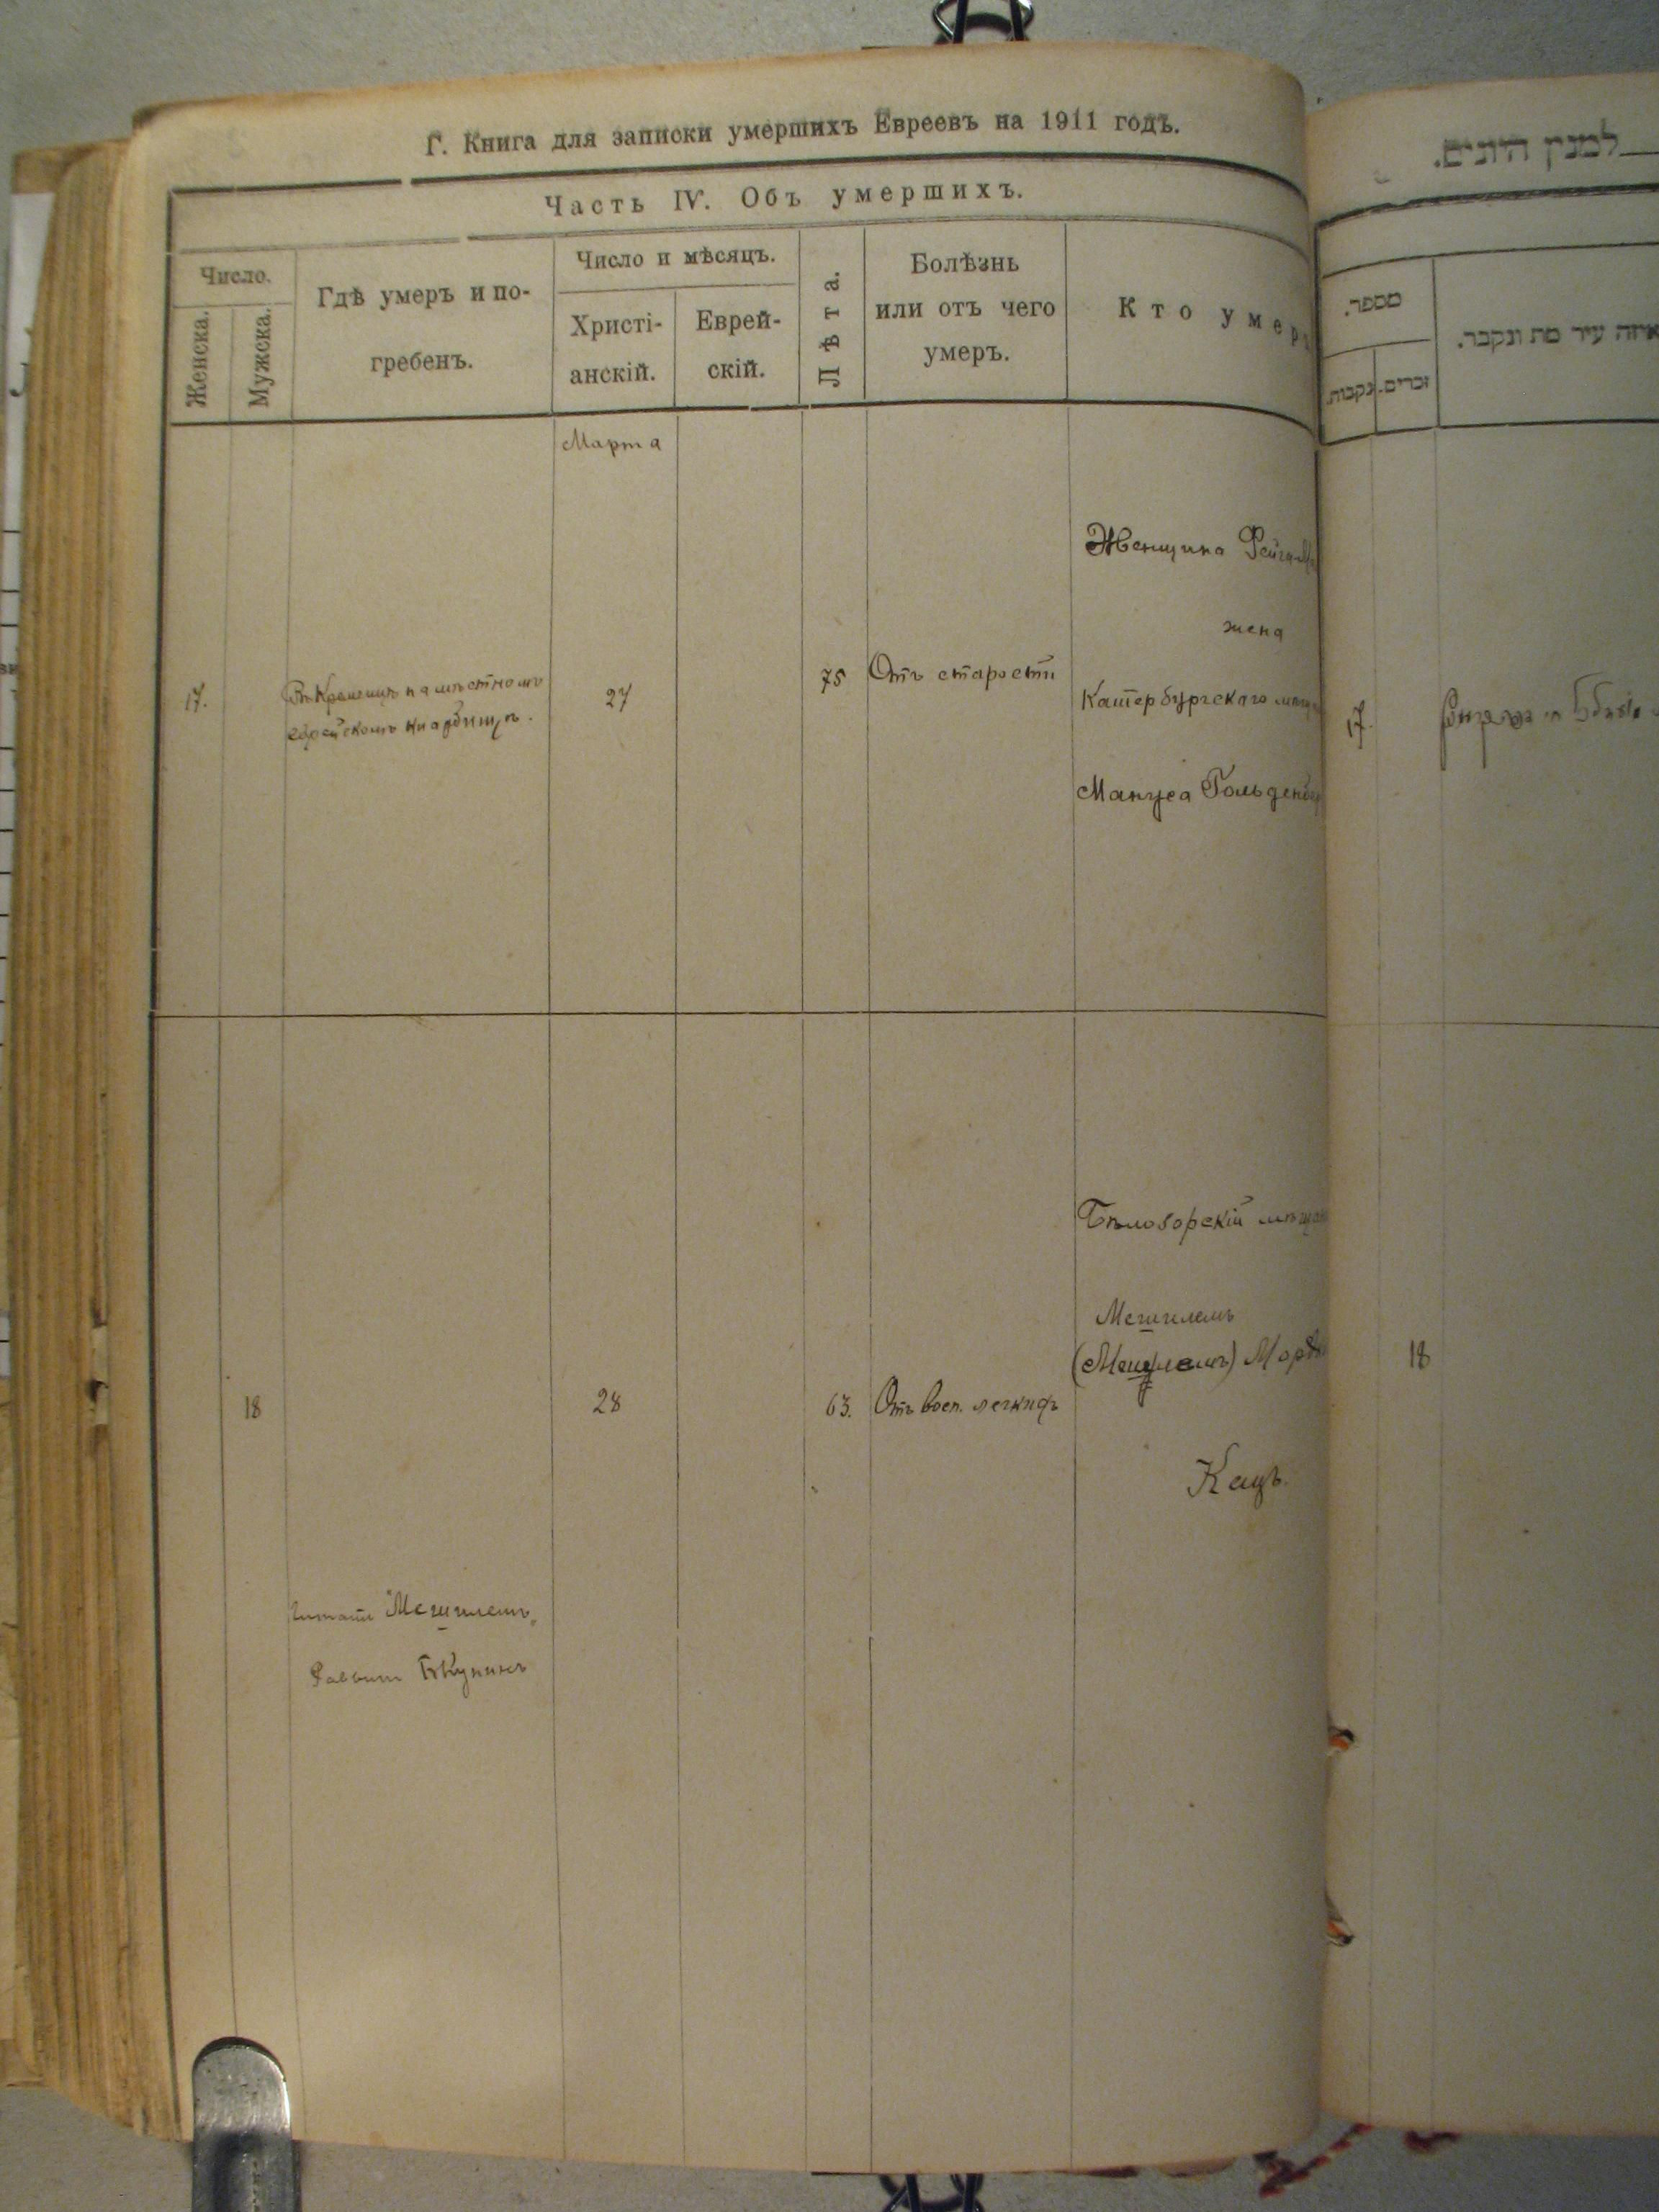 Г. Книга для записки умершихъ Евреевъ на 1911 годъ.
Часть IV. Объ умершихъ.
Число.
Женска.
Мужска.
Гдѣ умеръ и по-
гребенъ.
Число и мѣсяцъ.
Христі-
анскій.
Еврей-
скій.
Лѣта.
Болѣзнь
или отъ чего
умеръ.
Кто умеръ
Марта
17.
Въ Кременцѣ на мѣстномъ
еврейскомъ
27
75
Отъ старости
Женщина
жена
Катербургскаго
Мануса Гольденбер
18
28
63.
Отъ восп. легкихъ
Бѣлозорскій мѣщан
Мешилемъ
(Мешулемъ) Мордк
Кацъ.
Читать „Мешилемъ„
Раввинъ
למנין היונים.
מספר.
נקבות.
זכרים.
איזה עיר מת ונקבר.
17.
18